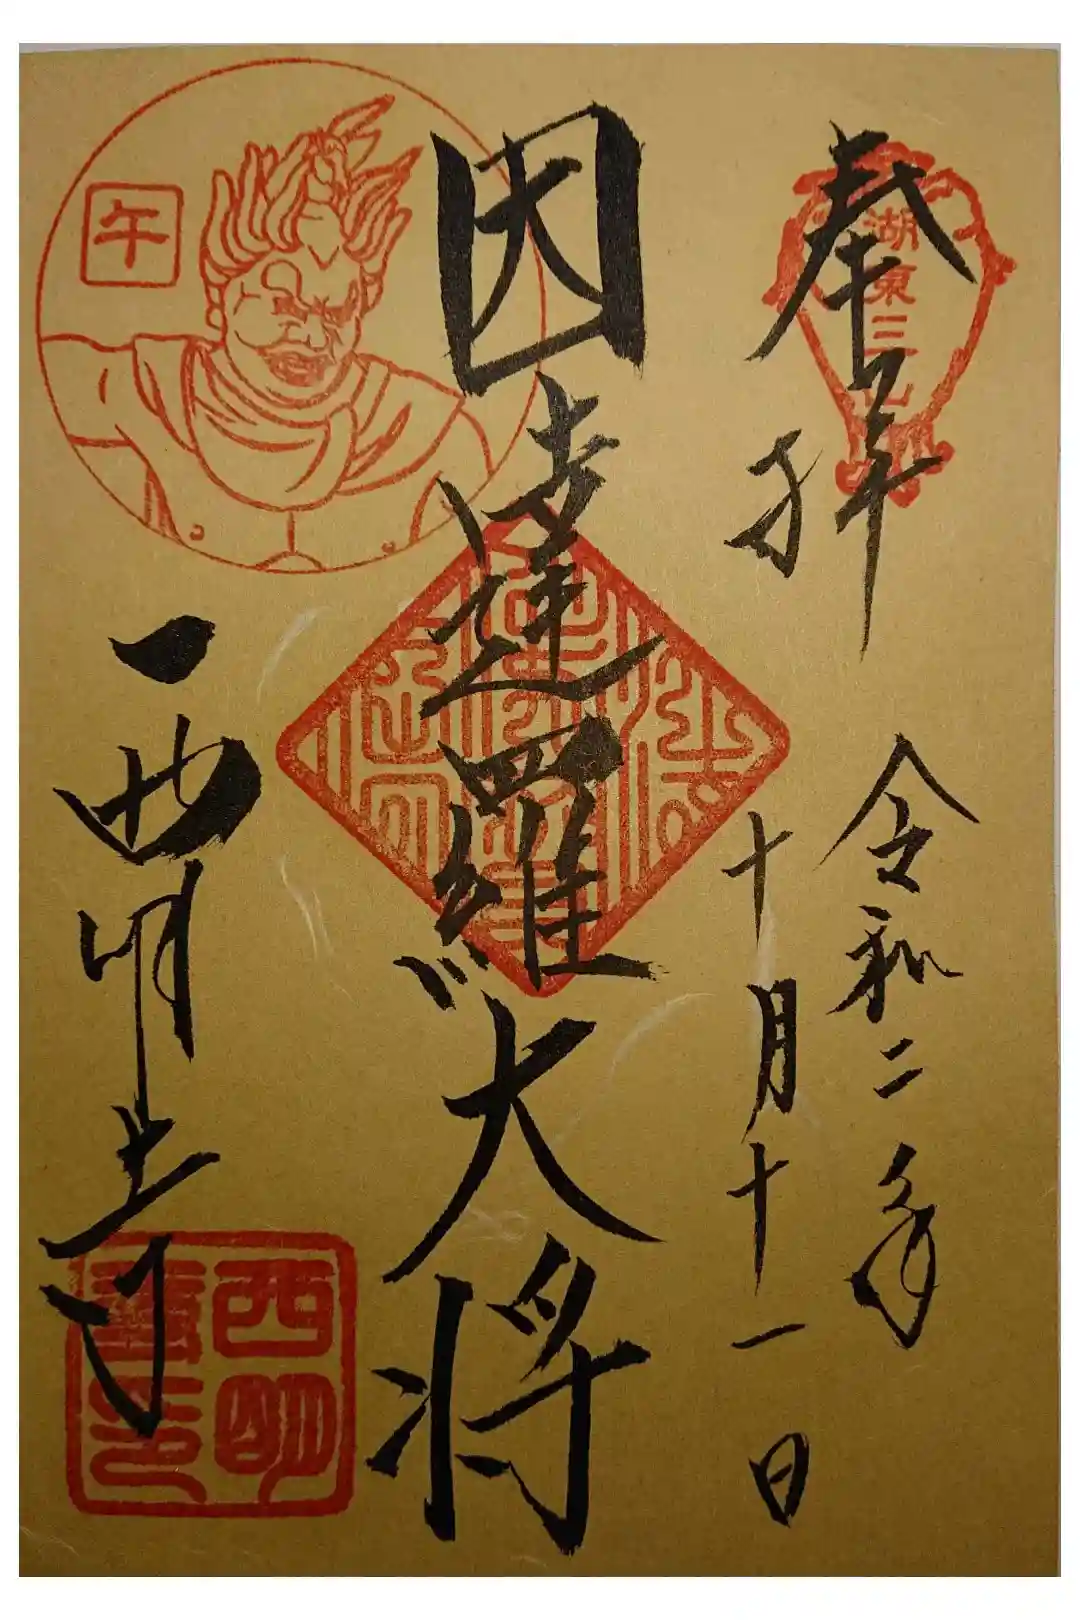 奉拝
令和二年
子
十月十一日
湖東三山
因達羅大将
午
西明寺
西明